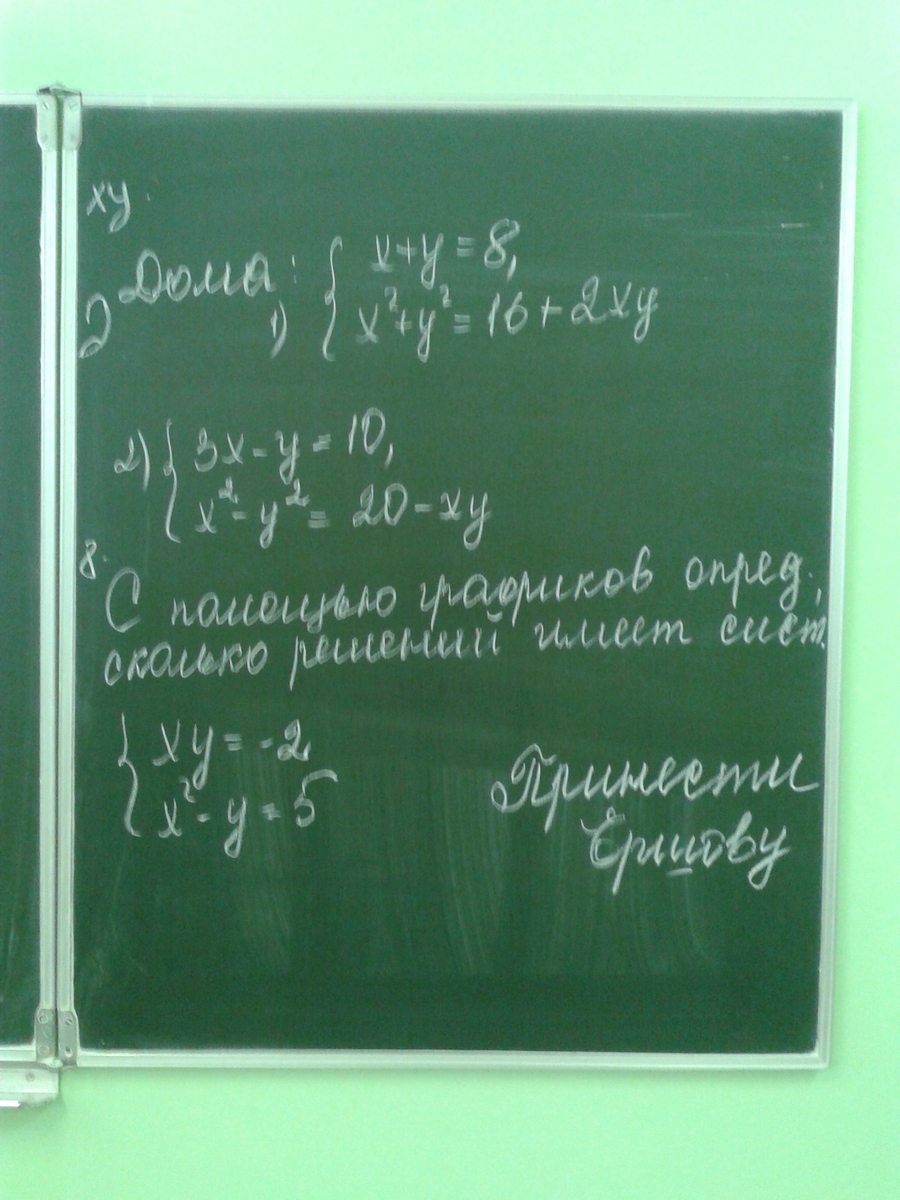 xy.
Дома:
1) { x+y=8,
x²+y²=16+2xy
2) { 3x-y=10,
x²-y²=20-xy
8.
С помощью графиков опред,
сколько решений имеет сист.
{ xy=-2
x²-y=5
Принести
Ершову